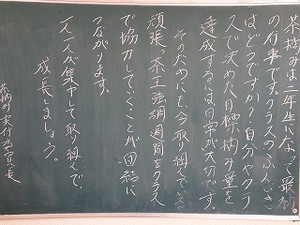 茶摘みは二年生になって最初
の行事です。クラスのふんいき
はどうですか。自分やクラ
スで決めた目標摘み量を
達成するには日常が大切です。
そのためにも、今取り組んでいる
頑張ろう茶工強調週間をクラス
で協力していくことが団結に
つながります。
一人一人が集中して取り組んで、
成長しましょう。
茶摘み実行委員長